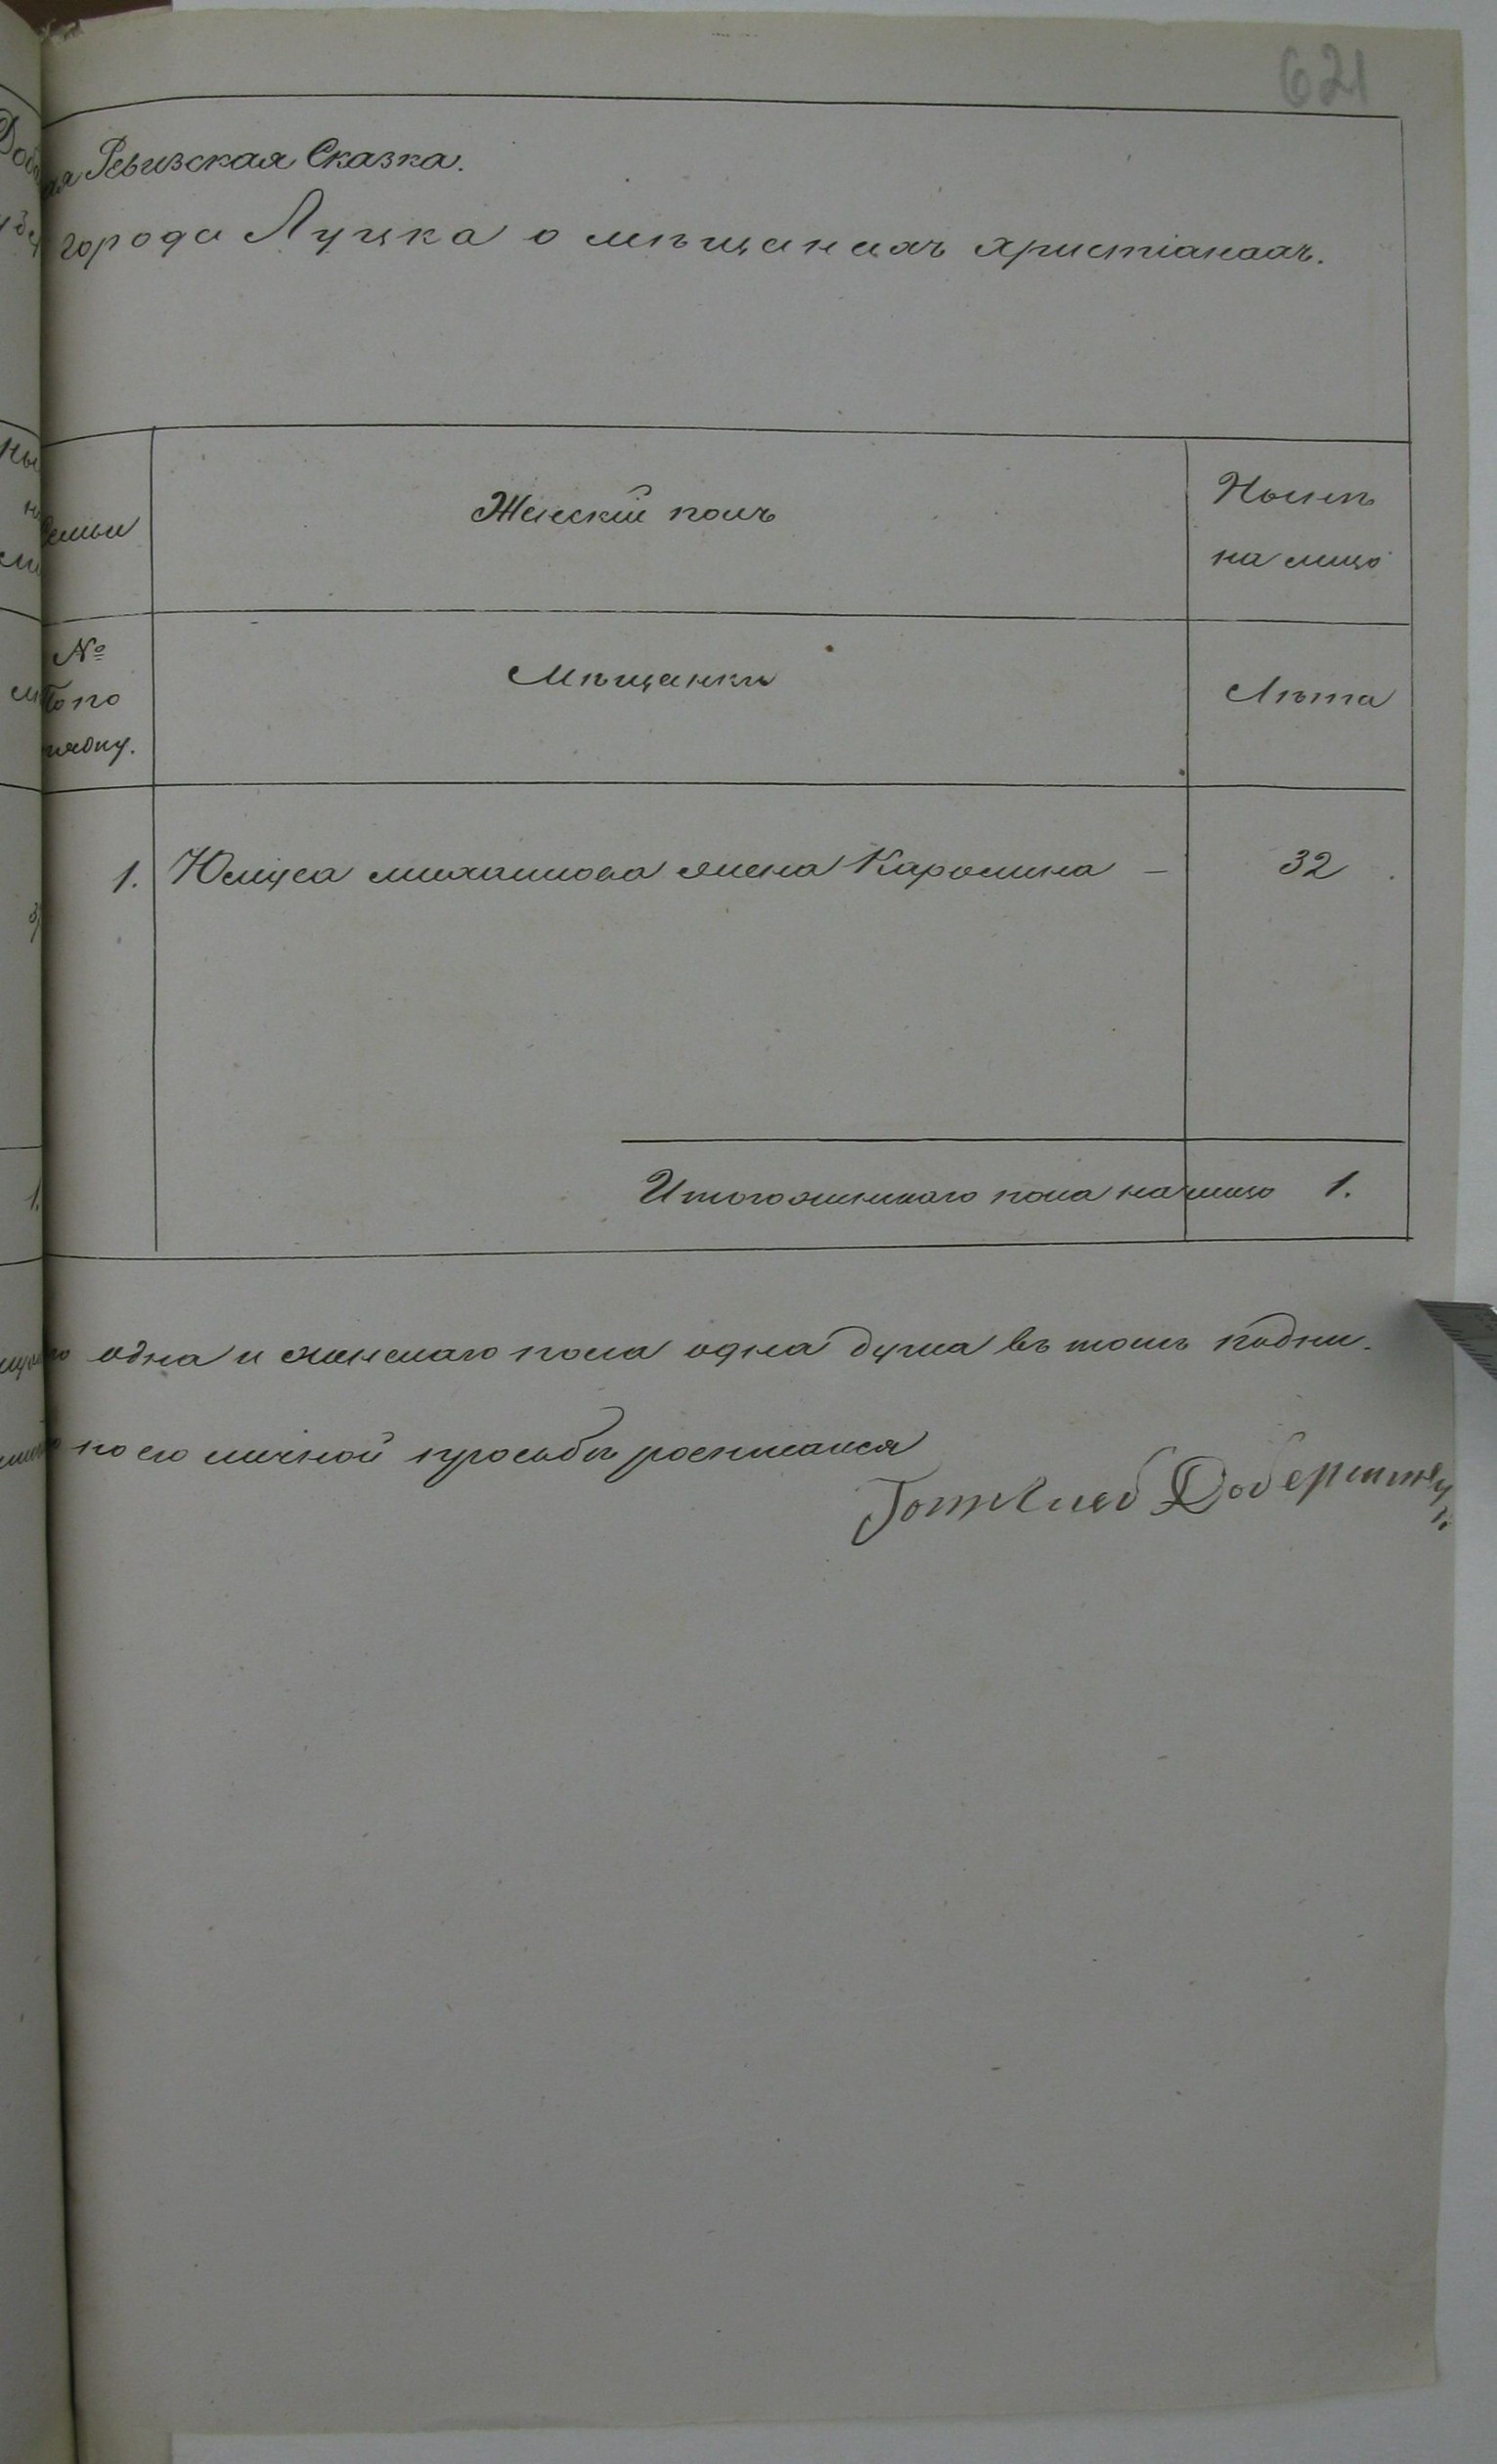 621
ая Ревизская Сказка.
города Луцка о мѣщанахъ христіанахъ.
Семьи
Женскій полъ
Нынѣ
на лицо
№
по
рядку.
Мѣщанки
Лѣта
1. Юлиуса михаилова жена Каролина — 32
Итого женскаго пола на лицо 1.
одна и женскаго пола одна душа въ томъ подпи-
по его личной просьбѣ росписался
Готлиеб Доберштейн